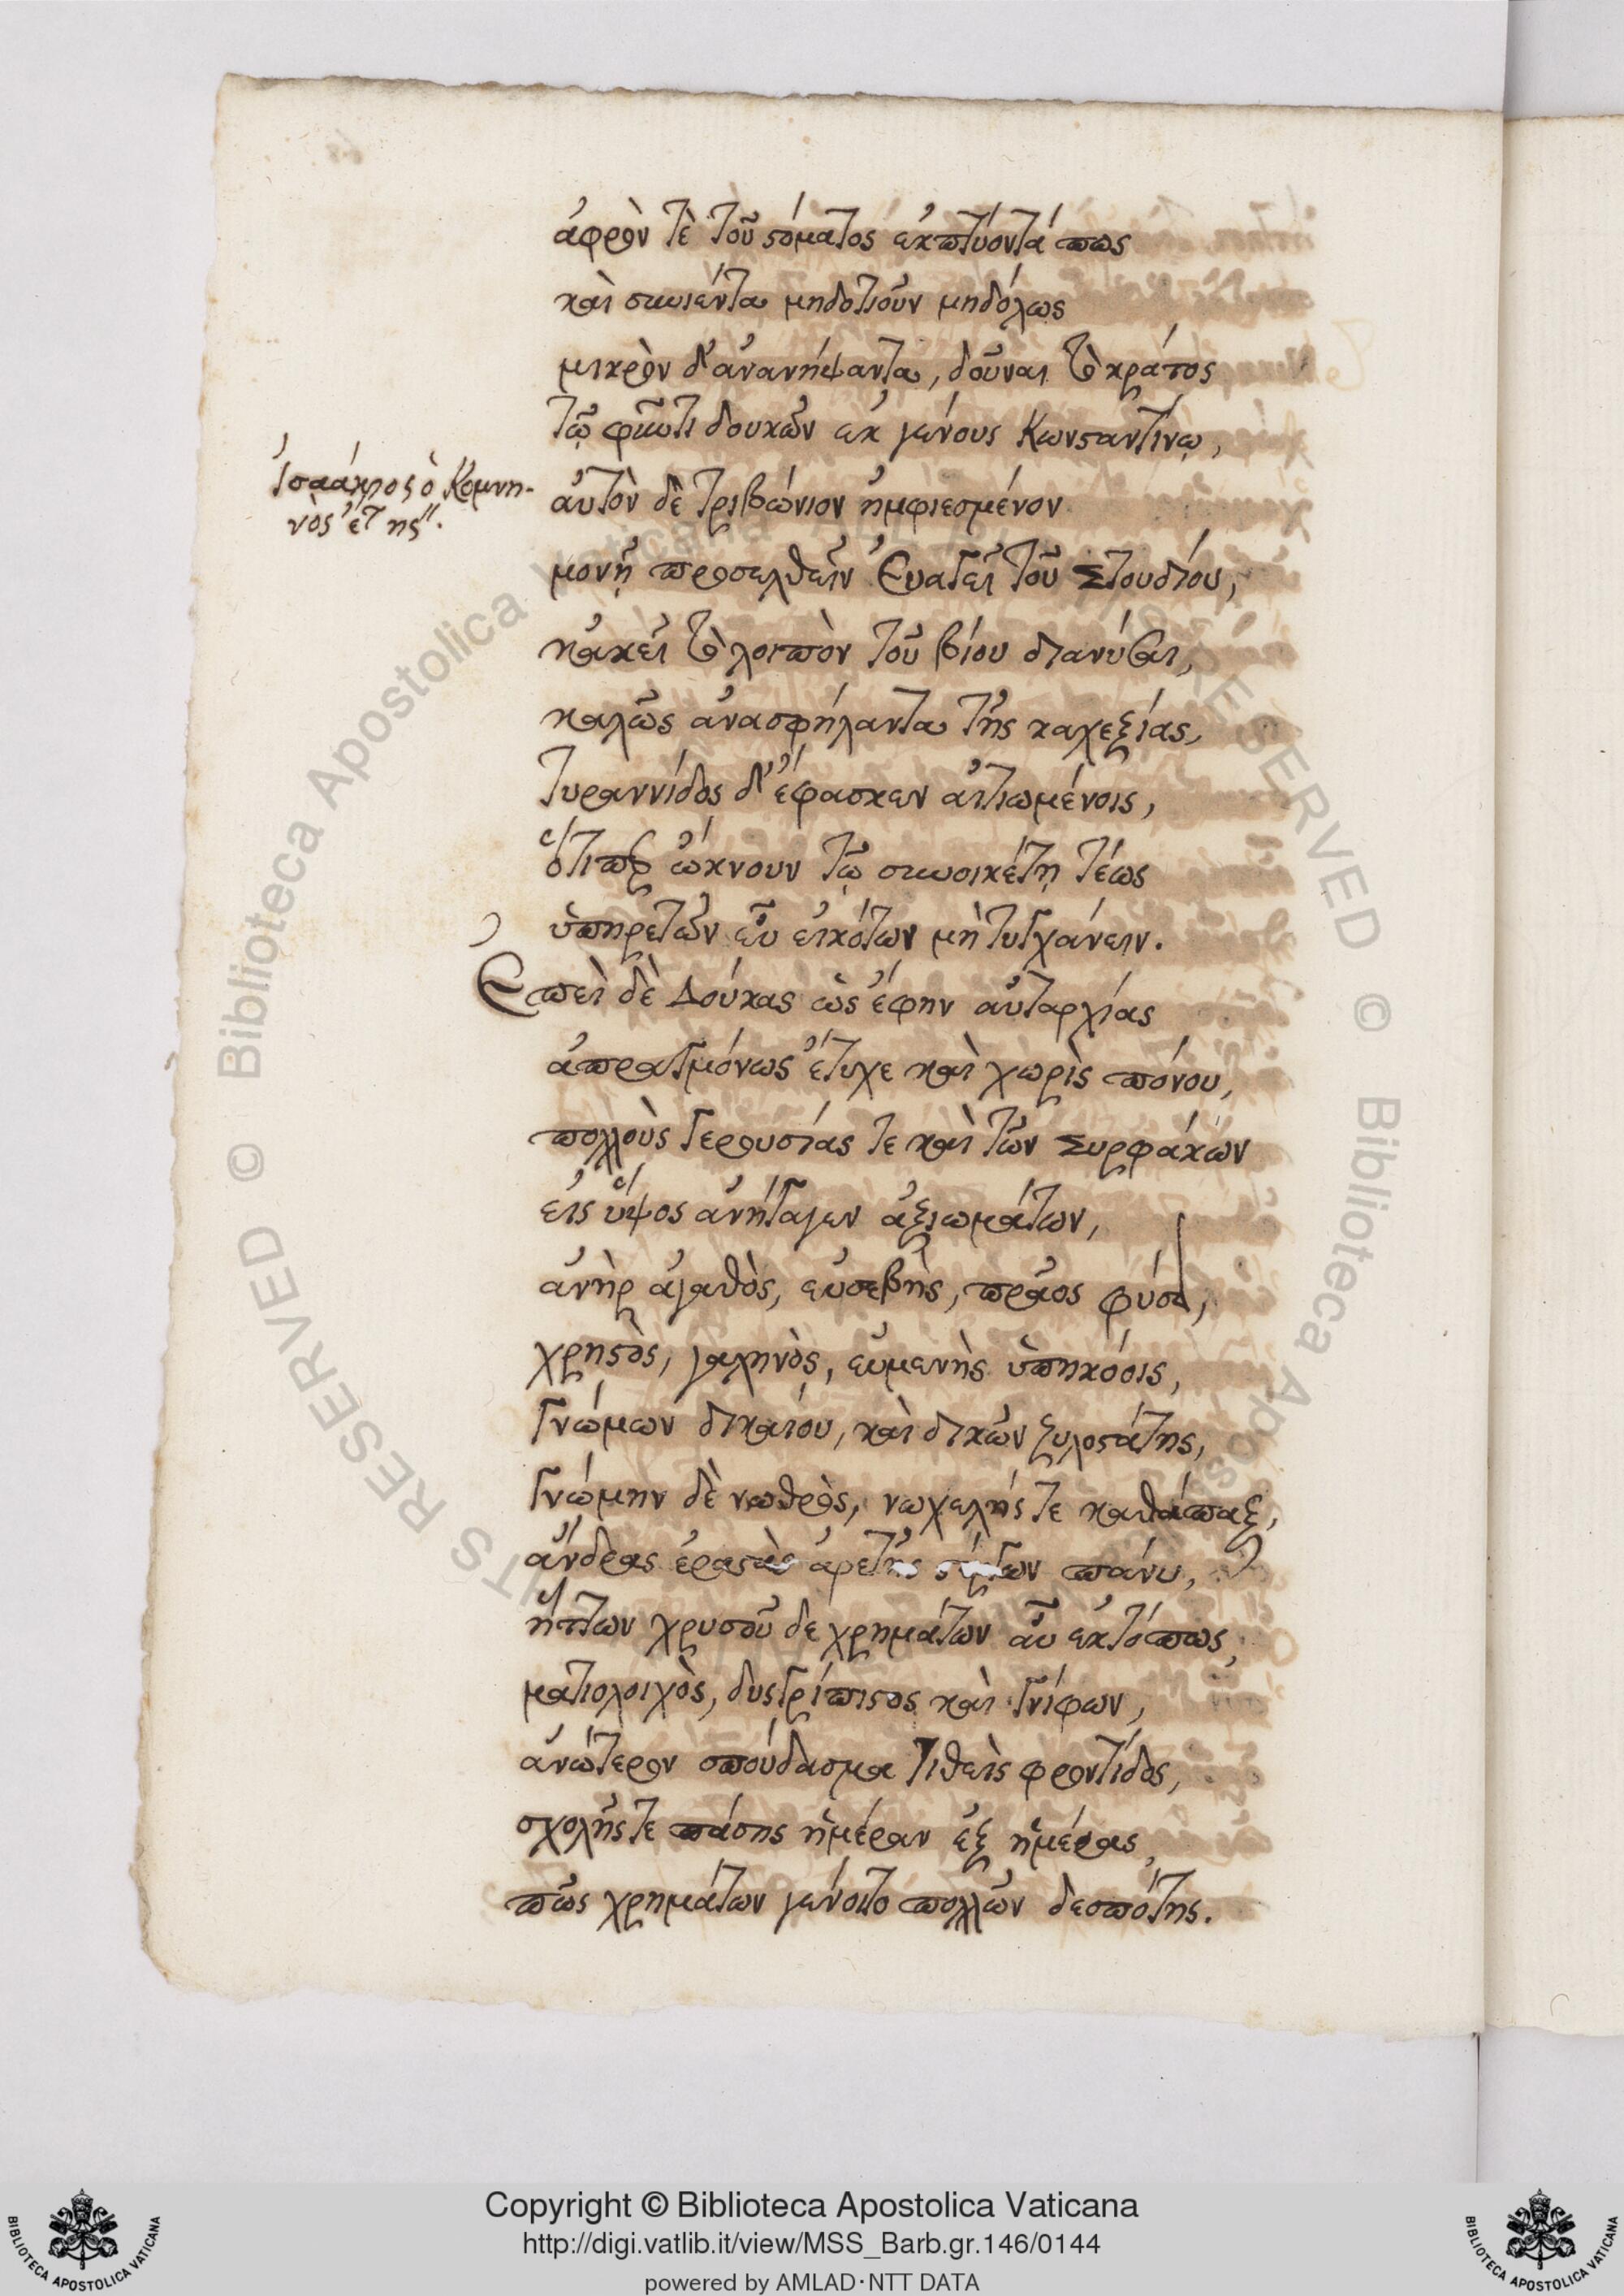 ἀφρὸν τὲ τοῦ στόματος ἐκπτύοντά πως
καὶ συνιέντα μηδοτιοῦν μηδόλως
μικρὸν δ' ἀνανήψαντα, δοῦναι τὸ κράτος
τῷ φωτὶ δουκῶν ἐκ γένους Κωνσταντίνῳ,
Ἰσαάκιος ὁ Κομνη-
νὸς ἔτ
αὐτὸν δὲ τριβώνιον ἠμφιεσμένον
μονῇ προσελθεῖν Εὐαγεῖ τοῦ Στουδίου,
κἀκεῖ τὸ λοιπὸν τοῦ βίου διανύσαι,
καλῶς ἀνασφήλαντα τῆς καχεξίας,
τυραννίδος δ' ἔφασκεν αἰτιωμένοις,
ὅτιπερ ὤκνουν τῷ συνοικέτῃ τέως
ὑπηρετῶν εὖ εἰκότων μὴ τυγχάνειν.
Ἐπεὶ δὲ Δούκας ὡς ἔφην αὐταρχίας
ἀπραγμόνως ἔτυχε καὶ χωρὶς πόνου,
πολλοὺς γερουσίας τε καὶ τῶν Συρφάκων
εἰς ὕψος ἀνήγαγεν ἀξιωμάτων,
ἀνὴρ ἀγαθὸς, εὐσεβὴς, πρᾶος φύσει,
χρηστὸς, γαληνὸς, εὐμενὴς ὑπηκόοις,
γνώμων δικαίου, καὶ δικῶν ζυγοστάτης,
γνώμην δὲ νωθρὸς, νωχελής τε καθάπαξ,
ἄνδρας ἐραστὰς ἀρετῆς στέργων πάνυ,
ἥττων χρυσοῦ δε χρημάτων αὖ ἐκτόπως,
ματιολοιχὸς, δυστρίπιστος καὶ γνίφων,
ἀνώτερον σπούδασμα τιθεὶς φροντίδος,
σχολῆς τε πάσης ἡμέραν ἐξ ἡμέρας,
πῶς χρημάτων γένοιτο πολλῶν δεσπότης.
Copyright © Biblioteca Apostolica Vaticana
http://digi.vatlib.it/view/MSS_Barb.gr.146/0144
powered by AMLAD·NTT DATA